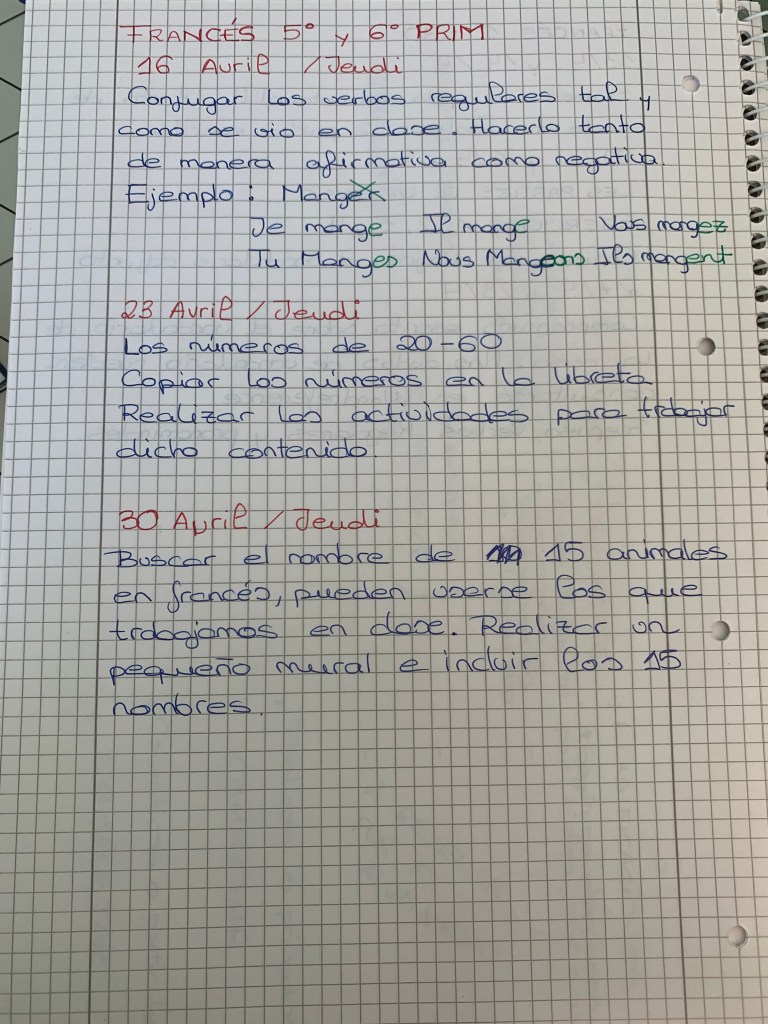 FRANCÉS 5º y 6º PRIM
16 Avril / Jeudi
Conjugar los verbos regulares tal y
como se vio en clase. Hacerlo tanto
de manera afirmativa como negativa.
Ejemplo: Manger
Je mange Il mange Vous mangez
Tu Manges Nous Mangeons Ils mangent
23 Avril / Jeudi
Los números de 20-60
Copiar los números en la libreta
Realizar las actividades para trabajar
dicho contenido.
30 Avril / Jeudi
Buscar el nombre de 15 animales
en francés, pueden userse los que
trabajamos en clase. Realizar un
pequeño mural e incluir los 15
nombres.